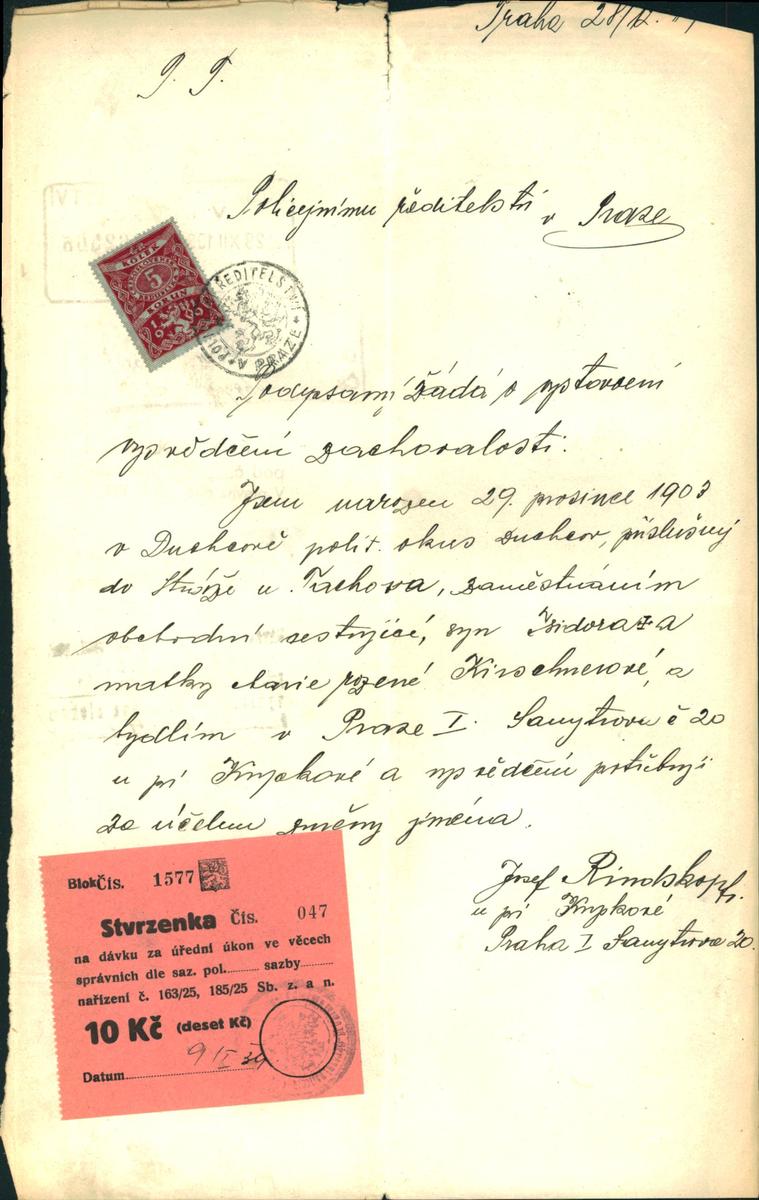 Praha 28/12.
P. T.
Policejnímu ředitelství v Praze
KOLEK
5
KORUN
1919
ŘEDITELSTVÍ
PRAZE
Podepsaný žádá o vystavení
vysvědčení zachovalosti.
Jsem narozen 29. prosince 1903
v Duchcově polit. okres Duchcov, příslušný
do Stráže u Tachova, zaměstnáním
obchodní cestující, syn Isidora a
matky Marie rozené Kirschnerové, a
bydlím v Praze I. Sanytrova č 20
u pí Knypkové a vysvědčení potřebuji
za účelem změny jména.
Josef Rindskopf.
u pí Knypkové
Praha I Sanytrova 20.
Blok Čís. 1577
Stvrzenka Čís. 047
na dávku za úřední úkon ve věcech
správních dle saz. pol......... sazby.........
nařízení č. 163/25, 185/25 Sb. z. a n.
10 Kč (deset Kč)
Datum 9 II 39